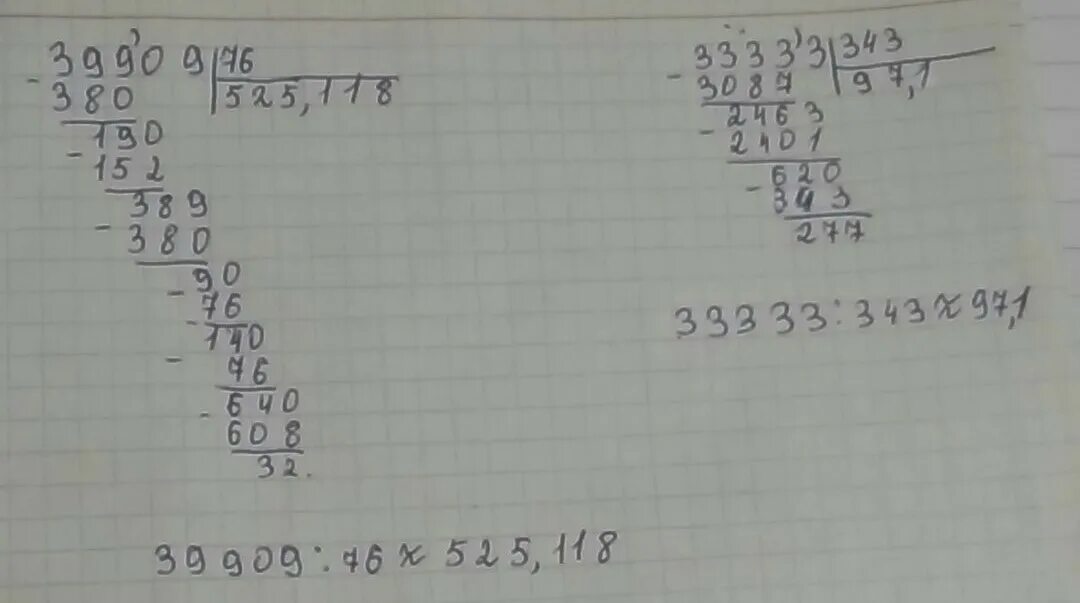 39909 | 76
- 380 | 525,118
190
- 152
389
- 380
90
- 76
140
- 76
640
- 608
32.
39909 : 76 ≈ 525,118
33333 | 343
- 3087 | 97,1
2463
- 2401
620
- 343
277
33333 : 343 ≈ 97,1